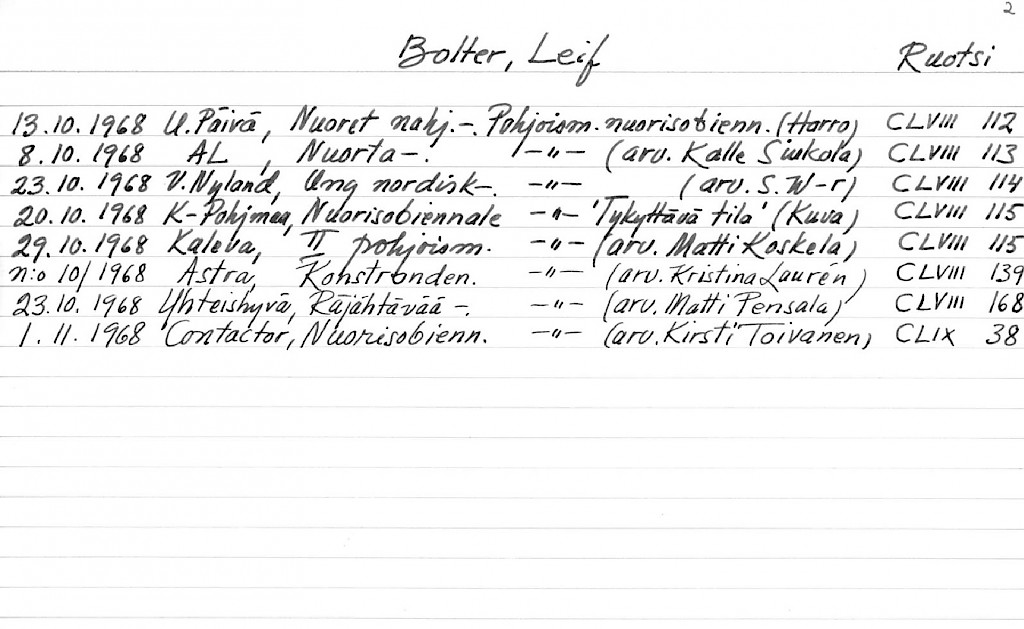 2
Bolter, Leif Ruotsi
13.10.1968 U.Päivä, Nuoret nahj.-. Pohjoism. nuorisobienn. (Harro) CLVIII 112
8.10.1968 AL, Nuorta-. -"- (arv. Kalle Siukola) CLVIII 113
23.10.1968 V.Nyland, Ung nordisk-. -"- (arv. S. W-r) CLVIII 114
20.10.1968 K-Pohjmaa, Nuorisobiennale -"- 'Tykyttävä tila' (Kuva) CLVIII 115
29.10.1968 Kaleva, II pohjoism. -"- (arv. Matti Koskela) CLVIII 115
n:o 10/1968 Astra, Konstronden. -"- (arv. Kristina Laurén) CLVIII 139
23.10.1968 Yhteishyvä, Räjähtävää-. -"- (arv. Matti Pensala) CLVIII 168
1.11.1968 Contactor, Nuorisobienn. -"- (arv. Kirsti Toivanen) CLIX 38